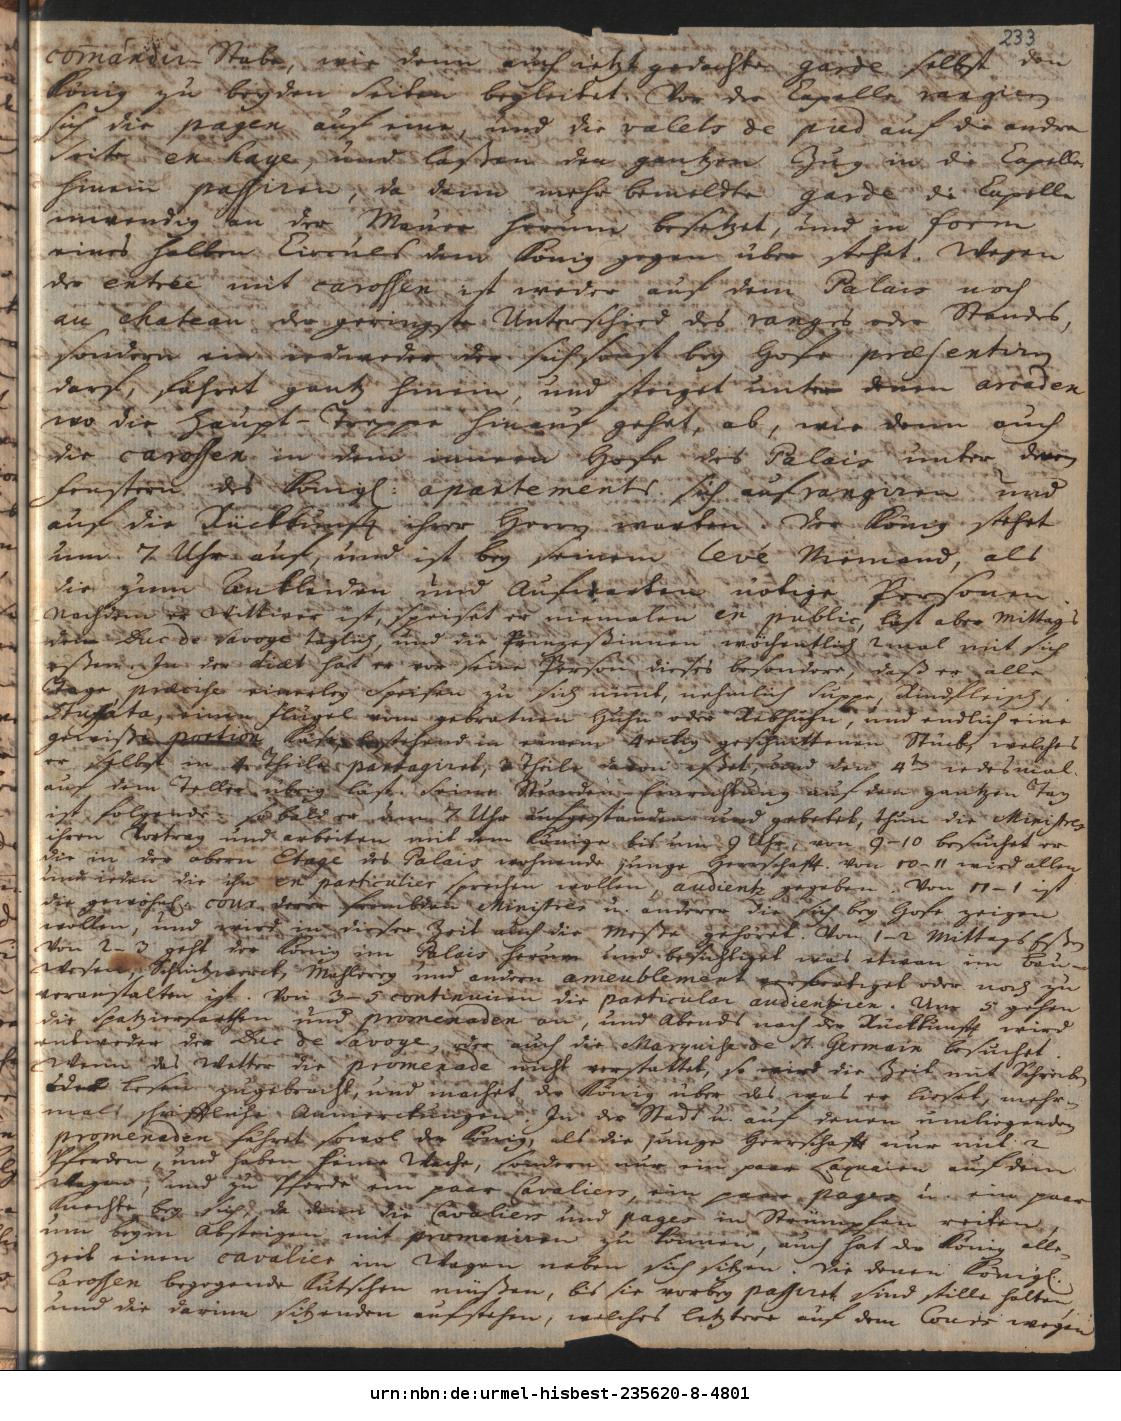 233
comandir-Stabe, wie denn auch ietzt gedachte garde selbst den
König zu beyden seiten begleitet. Vor der Capelle rangiren
sich die pagen auf eine, und die valets de pied auf die andre
Seite en haye, und laßen den gantzen Zug in die Capelle
hinein passiren, da dann mehr bemeldte garde die Capelle
inwendig an der Mauer herum besetzet, und in form
eines halben Circuls dem König gegen über stehet. Wegen
der entrée mit carossen ist weder auf dem Palais noch
au chateau der geringste Unterschied des ranges oder Standes,
sondern ein iedweder der sich sonst bey Hofe præsentiren
darf, fähret gantz hinein, und steiget unter denen arcaden
wo die Haupt-Treppe hinauf gehet, ab, wie denn auch
die carossen in dem innern Hofe des Palais unter denen
Fenstern des Königl: apartements sich auf rangiren und
auf die Rückkunft ihrer Herrn warten. Der König stehet
um 7 Uhr auf, und ist bey seinem levé Niemand, als
die zum Ankleiden und Aufwarten nötige Personen.
Nachdem er Wittwer ist, speiset er niemalen en public, läst aber Mittags
den Duc de Savoye täglich, und die Prinzeßinnen wöchentlich 2 mal mit sich
eßen. In der diæt hat er vor seine Person dieses besondere, daß er alle
Tage præcise einerley Speisen zu sich nimt, nehmlich Suppe, Rindfleisch,
Stuffata, einen Flügel vom gebratnen Huhn oder Rebhuhn, und endlich eine
gewisse portion Käse, bestehend in einem 4eckig geschnittenen Stück, welches
er selbst in 4 Theile partagiret, 3 Theile davon eßet, und den 4ten iedesmal
auf dem Teller übrig läst. Seine Stunden-Einrichtung auf den gantzen Tag
ist folgende: so bald er um 7 Uhr aufgestanden und gebetet, thun die Ministres
ihren Vortrag und arbeiten mit dem Könige bis um 9 Uhr, von 9-10 besuchet er
die in der obern Etage des Palais wohnende junge Herrschafft. Von 10-11 wird allen
und ieden die ihn en particulier sprechen wollen, audientz gegeben. Von 11-1 ist
die gewöhnl: cour derer frembden Ministres u. anderer die sich bey Hofe zeigen
wollen, und wird in dieser Zeit auch die Meße gehöret. Von 1-2 Mittags Eßen
Von 2-3 geht der König im Palais herum und besichtiget was etwan im Bau-
Wesen, Schnitzwerck, Mahlerey und andern ameublement verfertiget oder noch zu
veranstalten ist. Von 3-5 continuiren die particular audientzien. Um 5 gehen
die Spazierfarthen und promenaden an, und Abends nach der Rückkunfft wird
entweder der Duc de Savoye, oder auch die Marquise de St. Germain besuchet.
Wenn das Wetter die promenade nicht verstattet, so wird die Zeit mit Schreiben
oder lesen zugebracht, und machet der König über das was er lieset, mehr-
mals schrifftliche Anmerckungen. In der Stadt u. auf denen umliegenden
promenaden fähret sowol der König, als die junge Herrschafft nur mit 2
Pferden, und haben keine Wache, sondern nur ein paar Laquaien auf dem
Wagen, und zu Pferde ein paar Cavaliers, ein paar pages u. ein paar
Knechte bey sich, da denn die Cavaliers und pages in Strümpfen reiten,
um beym Absteigen mit promeniren zu können, auch hat der König alle-
zeit einen cavalier im Wagen neben sich sitzen. Die denen Königl.
Carossen begegnende Kutschen müßen, bis sie vorbey passiret sind stille halten,
und die darinn sitzenden aufstehen, welches letztere auf dem Cours wegen
urn:nbn:de:urmel-hisbest-235620-8-4801